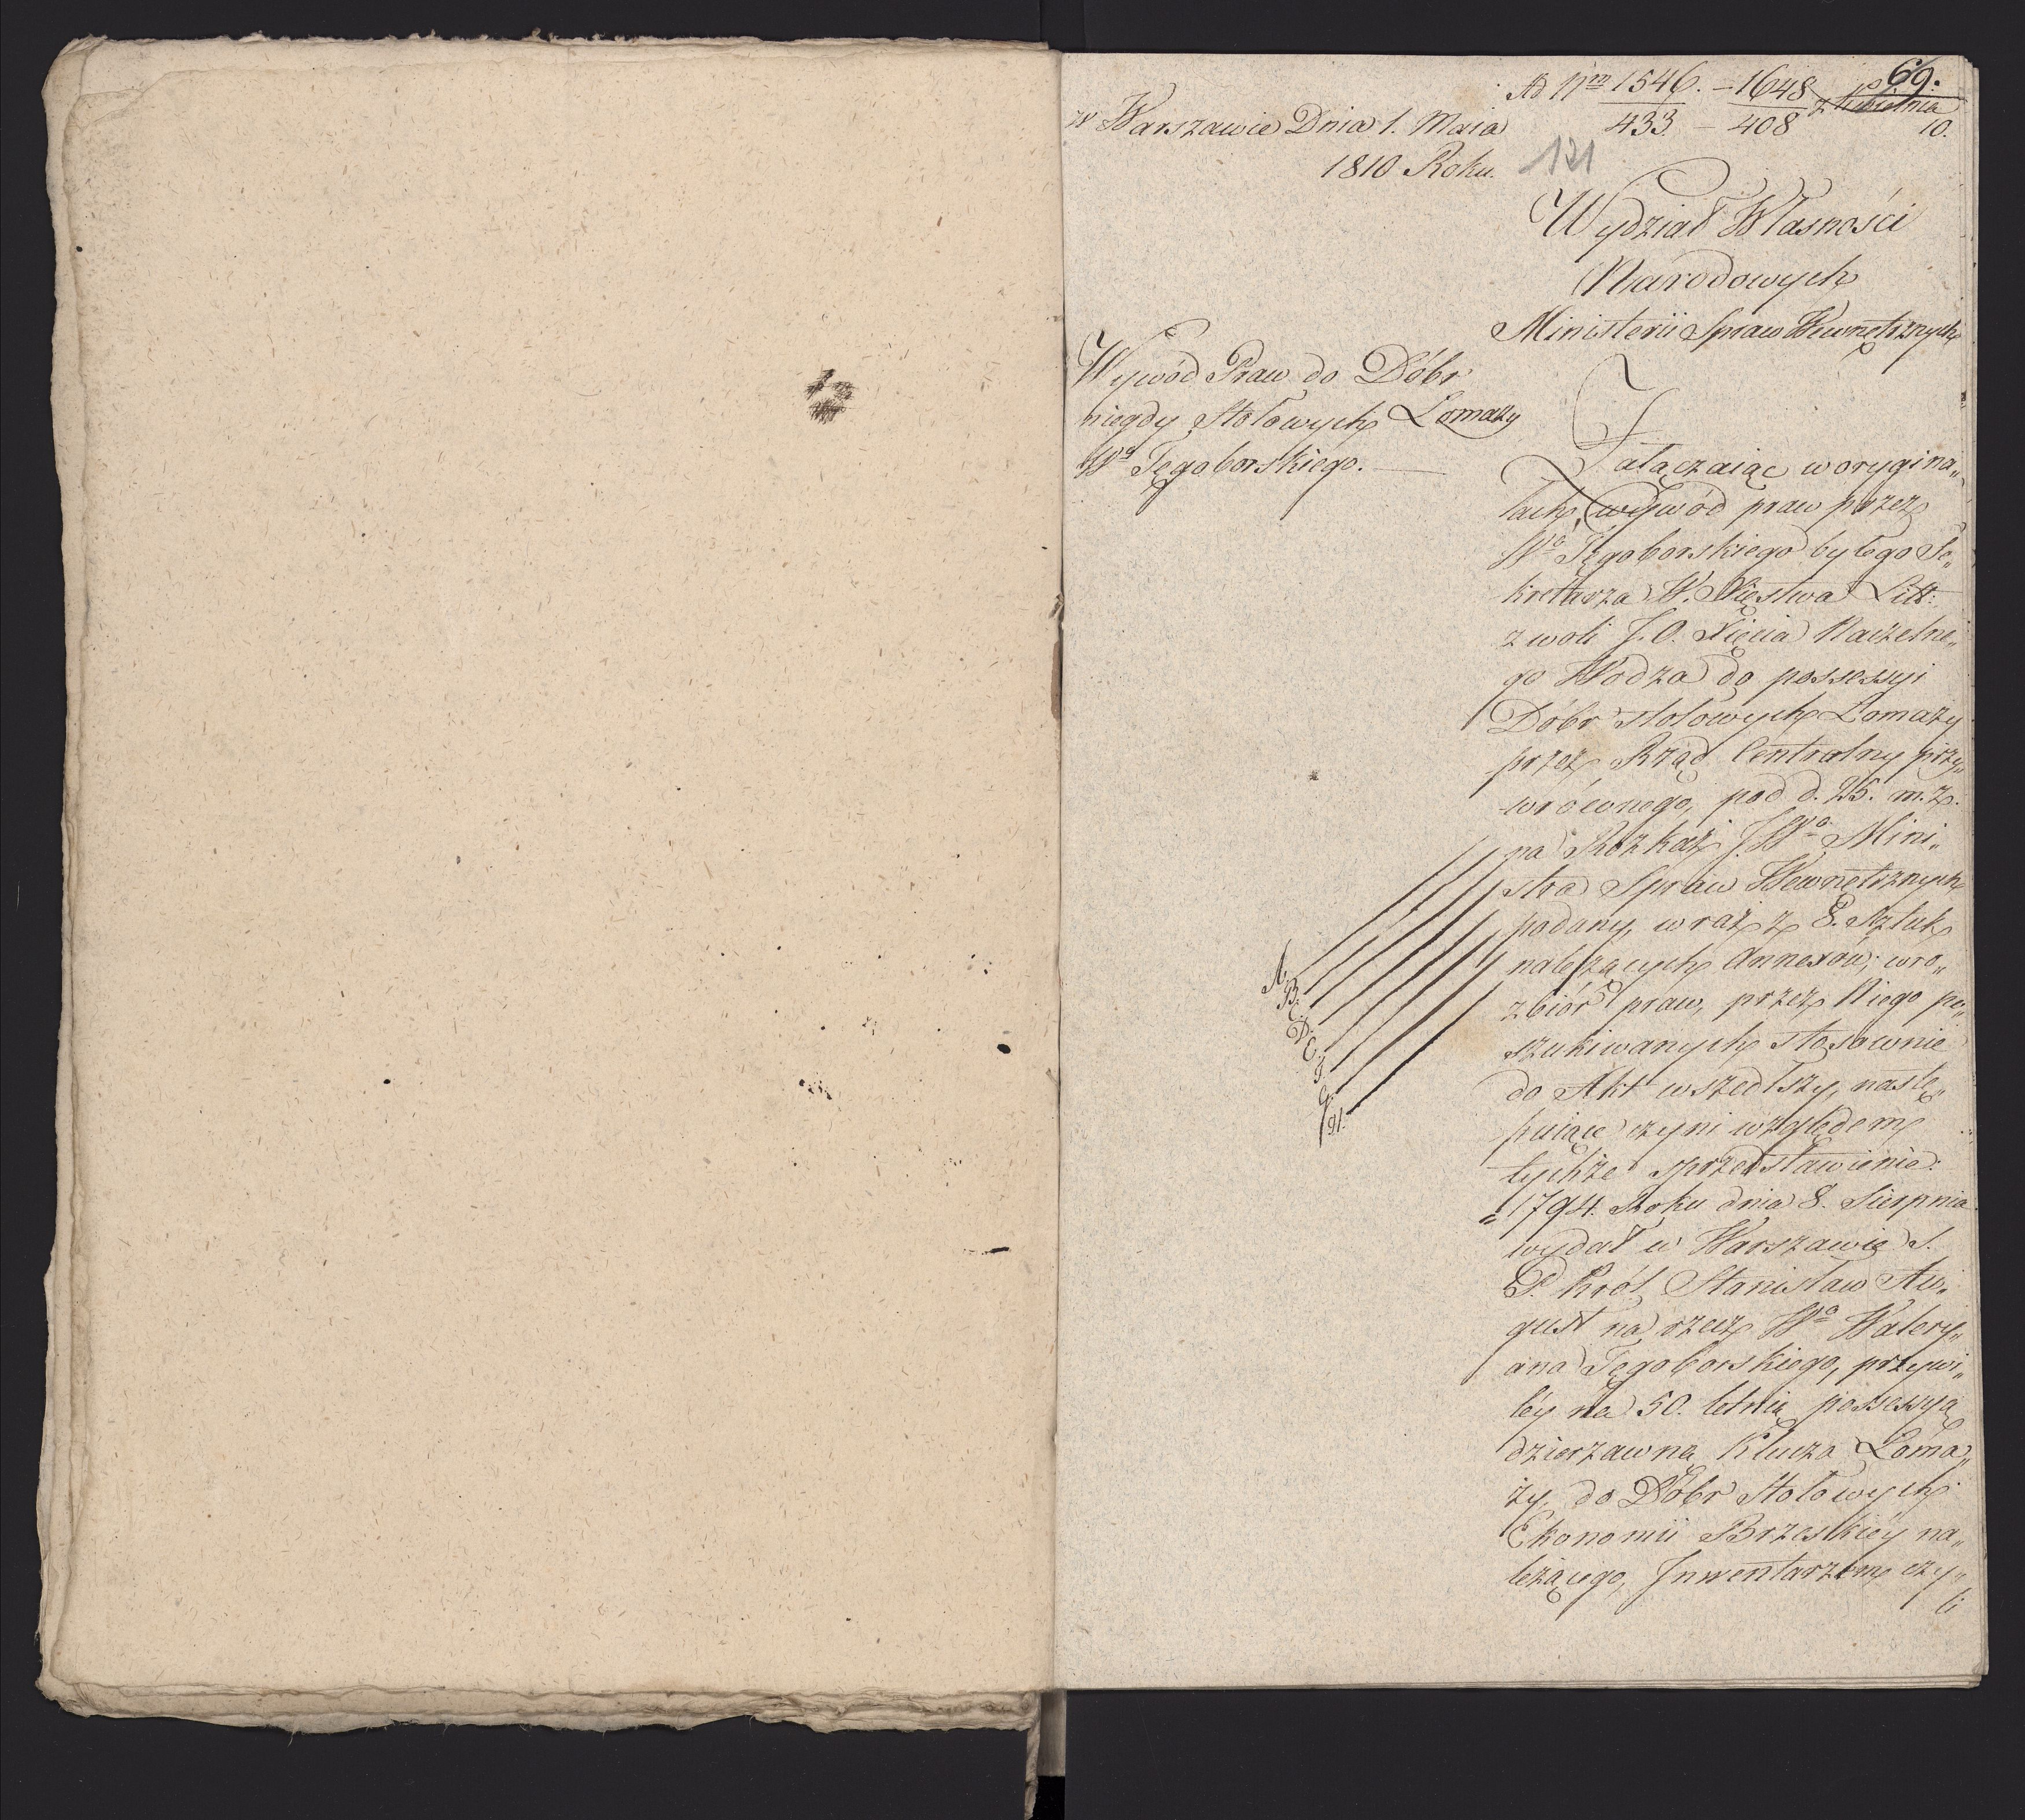 69.
Ad Nrm 1546. – 1648
433 – 408 z kwietnia
10.
w Warszawie Dnia 1. Maia
1810 Roku.
121
Wydział Własności
Narodowych
Ministerii Spraw Wewnętrznych
Wywód Praw do Dóbr
niegdy Stołowych Łomazy
Wo Tęgoborskiego.
Załączaiąc w orygina„
łach, wywód praw przez
Wo Tęgoborskiego byłego Se„
kretarza W. Xięstwa Litt:
z woli J. O. Xięcia Naczelne„
go Wodza do possessyi
Dóbr stołowych Łomazy
przez Rząd Centralny przy„
wróconego, pod d. 26. m. z.
na Rozkaz JWo Mini„
stra Spraw Wewnętrznych
podany, wraz z 8. Sztuk
należących Annexów, w ro„
zbiór praw, przez Niego po„
szukiwanych stosownie
do Akt wszedłszy, nastę„
puiące czyni względem
tychże przedstawienie:
A.
B.
C.
D.
E.
F.
G.
H.
„1794. Roku dnia 8. Sierpnia
wydał w Warszawie S.
P. Król Stanisław Au„
gust na rzecz Wo Walery„
ana Tęgoborskiego, przywi„
léy na 50. letnią possessyą
dzierzawną Klucza Łoma„
zy, do Dóbr Stołowych
Ekonomii Brzeskiéy na„
leżącego, Inwentarzem czy„
li